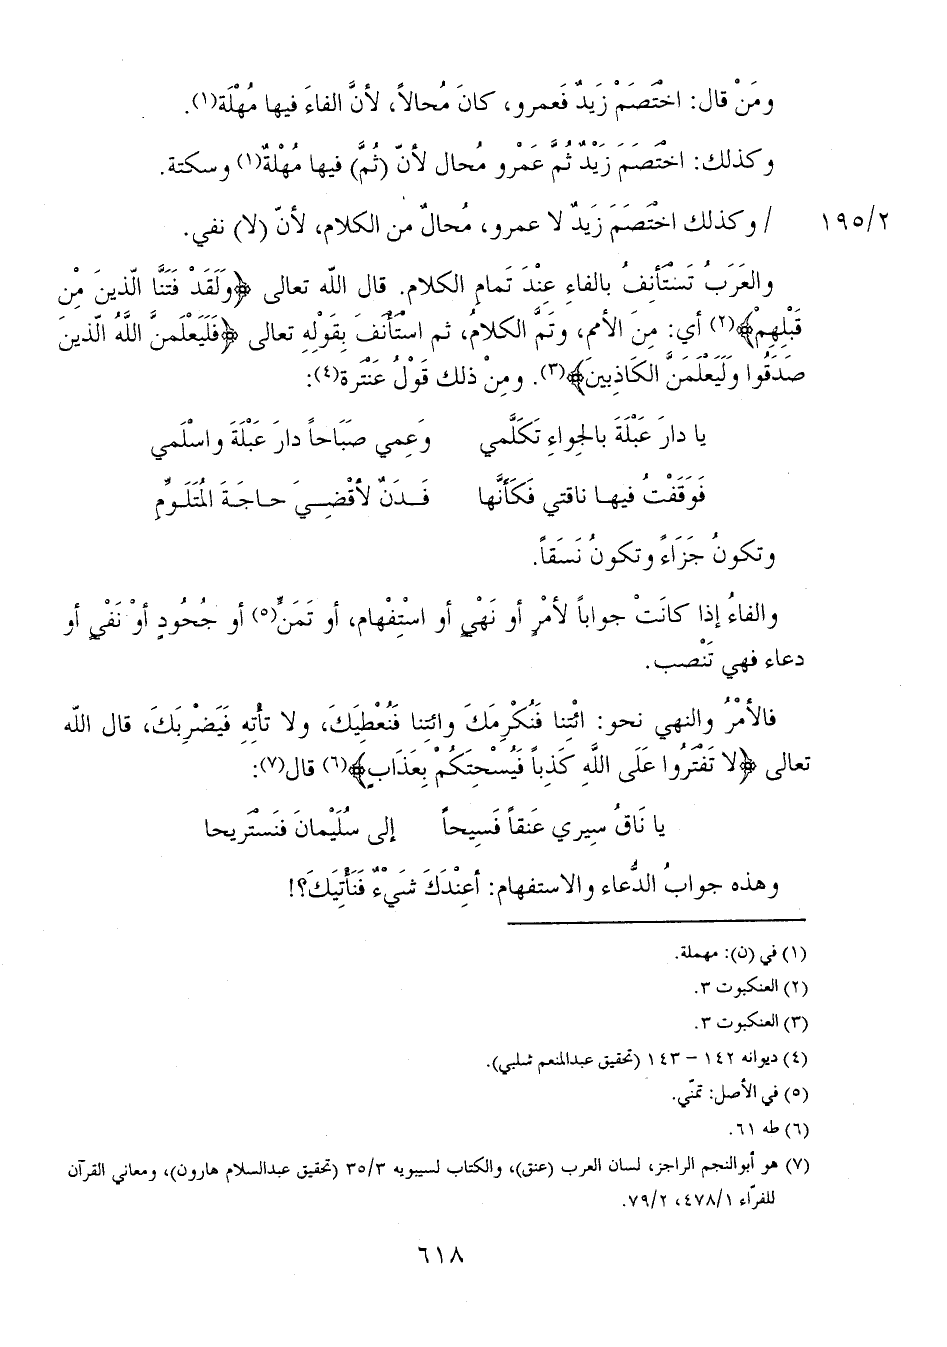 ومَنْ قال: اخْتَصَمَ زَيدٌ فَعمرو، كانَ مُحالاً، لأنَّ الفاءَ فيها مُهْلَة(١).
وكذلك: اخْتَصَمَ زَيْدٌ ثُمَّ عَمْرو مُحال لأنّ (ثُمَّ) فيها مُهْلةٌ(١) وسكتة.
١٩٥/٢ / وكذلك اخْتَصَمَ زَيدٌ لا عمرو، مُحالٌ من الكلام، لأنّ (لا) نفي.
والعَرَبُ تَسْتَأنِفُ بالفاءِ عِنْدَ تَمامِ الكلام. قال اللّه تعالى ﴿وَلَقَدْ فَتَنَّا الّذينَ مِن
قَبْلِهِمْ﴾(٢) أي: مِنَ الأمم، وتَمَّ الكلامُ، ثم اسْتَأنَفَ بِقَوْلِهِ تعالى ﴿فَلَيَعْلَمنَّ اللَّهُ الّذينَ
صَدَقُوا وَلَيَعْلَمَنَّ الكَاذِبينَ﴾(٣). ومِنْ ذلك قَوْلُ عَنْتَرة(٤):
يا دارَ عَبْلَةَ بالجِواءِ تَكَلَّمي وَعِمي صَبَاحاً دارَ عَبْلَةَ واسْلَمي
فَوَقَفْتُ فيها ناقتي فَكَأنَّها فَدَنٌ لأقْضِيَ حاجَةَ المُتَلَوِّمِ
وتكونُ جَزَاءً وتكونُ نَسَقاً.
والفاءُ إذا كانَتْ جواباً لأمْرٍ أو نَهْيٍ أو اسْتِفْهام، أو تَمَنٍّ(٥) أو جُحُودٍ أوْ نَفْيٍ أو
دعاء فهي تَنْصب.
فالأمْرُ والنهي نحو: ائْتِنا فَنُكْرِمَكَ وائتِنا فَنُعْطِيَكَ، ولا تأْتِهِ فَيَضْرِبَكَ، قال اللّه
تعالى ﴿لا تَفْتَرُوا عَلَى اللَّهِ كَذِباً فَيُسْحِتَكُمْ بِعَذَابٍ﴾(٦) قال(٧):
يا نَاقُ سِيري عَنقاً فَسِيحاً إلى سُلَيْمانَ فَنَسْتَريحا
وهذه جوابُ الدُّعاء والاستفهام: أعِنْدَكَ شَيْءٌ فَنَأتِيَكَ؟!
(١) في (ن): مهملة.
(٢) العنكبوت ٣.
(٣) العنكبوت ٣.
(٤) ديوانه ١٤٢ – ١٤٣ (تحقيق عبدالمنعم شلبي).
(٥) في الأصل: تمنّي.
(٦) طه ٦١.
(٧) هو أبوالنجم الراجز، لسان العرب (عنق)، والكتاب لسيبويه ٣٥/٣ (تحقيق عبدالسلام هارون)، ومعاني القرآن
للفرّاء ٤٧٨/١، ٧٩/٢.
٦١٨